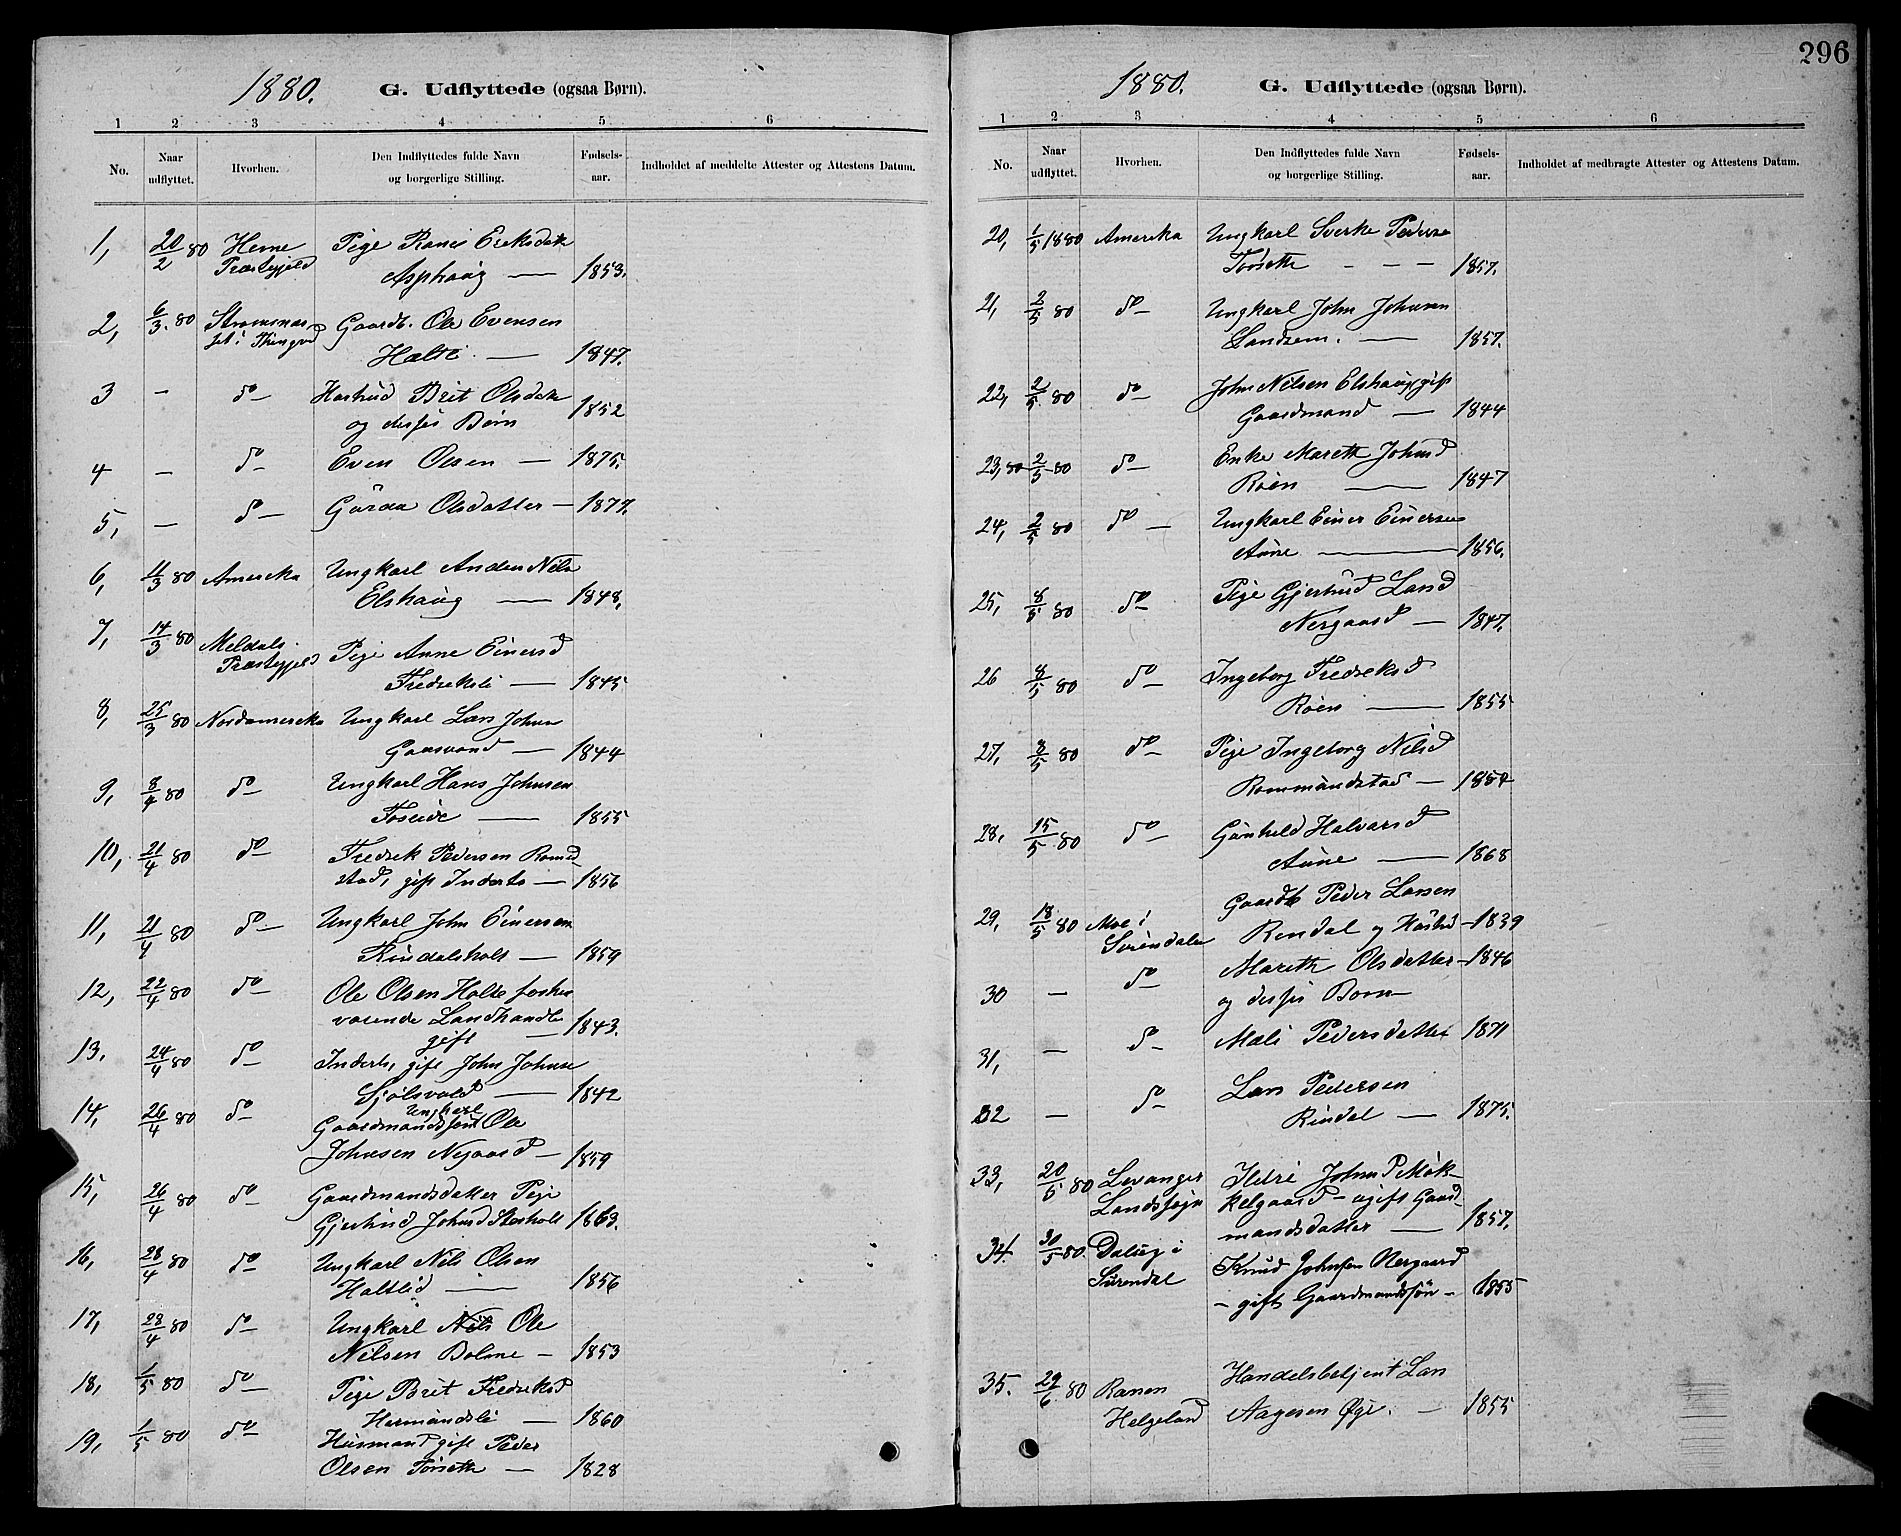 296
1880. G. Udflyttede (ogsaa Børn).
1 2 3 4 5 6
No. Naar udflyttet. Hvorhen. Den Indflyttedes fulde Navn og borgerlige Stilling. Fødsels-aar. Indholdet af meddelte Attester og Attestens Datum.
1, 20/2 80 Hemne Pige Ranei Eriksdatr
Præstegjeld Asphaug — 1853.
2, 6/3. 80 Gaardb. Ole Evensen
Halte. — 1847.
3 — do Hustrud Brit Olsdatr
og disses Børn 1852
4 — do Even Olsen — 1875.
5, — do Guroa Olsdatter — 1877.
6, 11/3 80 Amerika Ungkarl Anders Nils
Elshaug — 1848.
7, 14/3 80 Meldals Pige Anne Einersd
Præstegjeld Fredriksli — 1845
8, 25/3 80 Nordamerika Ungkarl Lars Johnsen
Gaasvand — 1844
9, 8/4 80 do Ungkarl Hans Johnsen
Foseide — 1855
10, 21/4 80 do Fredrik Pedersen Romd
stad, gift Inderts — 1856
11, 21/4 80 do Ungkarl John Einersen
Rindalsholt — 1859
12, 22/4 80 do Ole Olsen Halte forhen
værende Landhandle
gift — 1843.
13. 24/4 80 do Inderts, gift John Johnse
Sjølsvold — 1842
14, 26/4 80 do Ungkarl
Gaardmandssøn Ole
Johnsen Negaard — 1859
15, 26/4 80 do Gaardmandsdatter Pige
Gjertrud Johnsd Storholt 1863.
16, 28/4 80 do Ungkarl Nils Olsen
Haltlid — 1856
17, 28/4 80 do Ungkarl Nils Ole
Nilsen Bolme — 1853
18, 1/5 80 do Pige Brit Fredriksd
Hermandsli — 1860
19, 1/5 80 do Husmand gift Peder
Olsen Torsette — 1828
1880. G. Udflyttede (ogsaa Børn).
1 2 3 4 5 6
No. Naar udflyttet. Hvorhen. Den Indflyttedes fulde Navn og borgerlige Stilling. Fødsels-aar. Indholdet af medbragte Attester og Attestens Datum.
20, 1/5 1880 Amerika Ungkarl Sverke Pederse
Torsette — — — 1857.
21, 2/5 80 do Ungkarl John Johnsen
Landsem. — 1857.
22, 2/5. 80 do John Nilsen Elshaug gift
Gaardmand — 1844
23, 80 2/5 80 do Enke Marett Johnsd
Roen — 1847
24, 2/5 80 do — Ungkarl Einer Einersen
Aune — 1856.
25, 8/5 80 do Pige Gjertrud Larsd
Nergaard — 1847.
26 8/5 80 do Ingeborg Fredriksd
Roen — 1855
27, 8/5 80 do Pige Ingeborg Nilsd
Rommundstad — 1854
28, 15/5 80 do Gunhild Halvarsd
Aune — 1868
29, 18/5 80 Moe i Gaardb Peder Larsen
Surendalen Rindal og Hustru — 1839
30 — do Marett Olsdatter — 1846
og disses Børn —
31, — do Mali Pedersdatter 1871
32 — do Lars Pedersen
Rindal — 1875.
33, 20/5 80 Levanger Ildri Johnsd Mek-
Landsogn kelgaard — ugift Gaard
mandsdatter — 1857.
34. 30/5 80. Dalseg i Knud Johnsen Nergaard
Surendal — gift Gaardmandssøn — 1855
35. 29/6. 80 Ranen Handelsbetjent Lars
Helgeland Aagesen Øye. — 1855